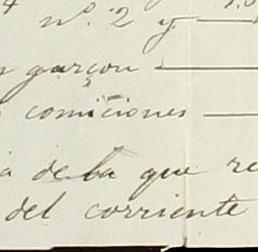 nº. 2 y
garçon
comiciones
a de la que re
del corriente